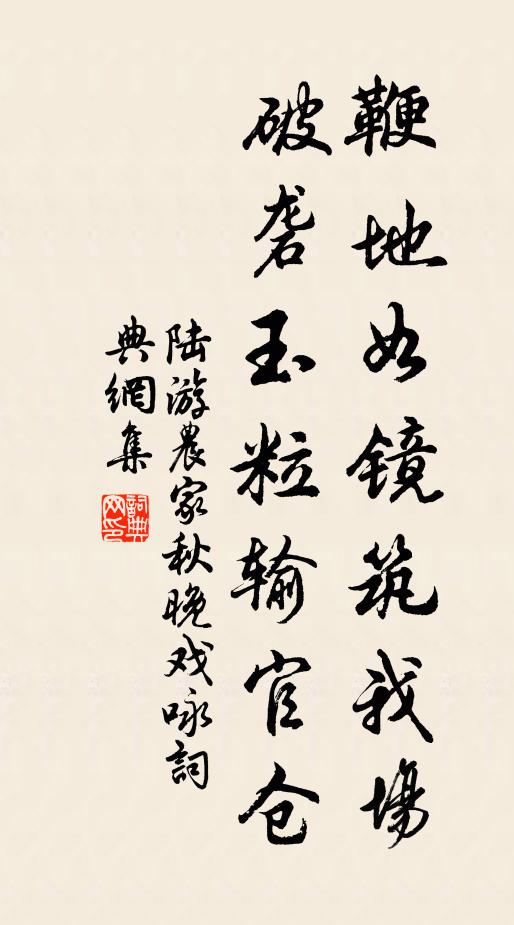 鞭地如镜筑我場
破砻玉粒输官仓
陆游農家秋晚戏咏詞
典網集
詞典網印